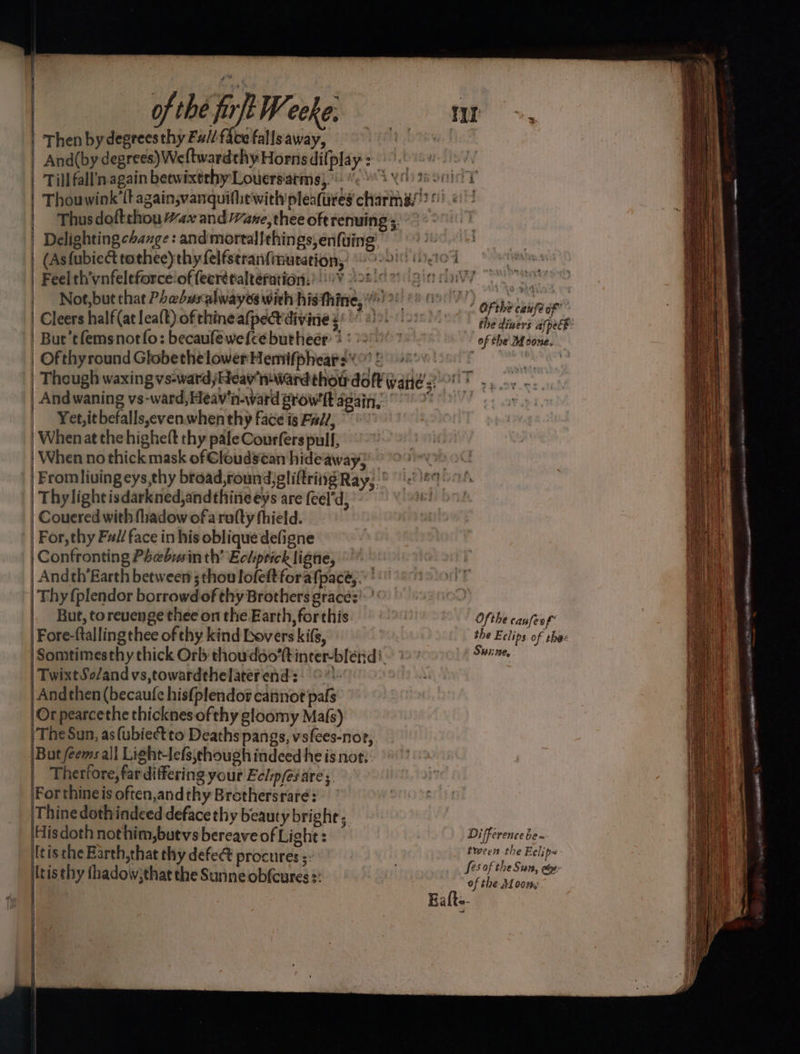 of the first Weeke. 111
Then by degrees thy Full face falls away,
And (by degrees) Westward thy Horns display:
Till fall'n again betwixt thy Louers arms,
Thou wink'st again, vanquisht with pleasures charms
Thus dost thou Wax and Wane, thee oft renuing;
Delighting change: and mortall things, ensuing
(As subiect to thee) thy selfs transmutation,
Feel th'vnfelt force of secret alteration.
Not, but that Phœbus alwayes with his shine,
Cleers half (at least) of thine aspect diuine;
But't sems not so: because we see but heer
Of thy round Globe the lower Hemisphear:
Though waxing vs-ward, Heav'n-ward thou dost wane;
And waning vs-ward, Heav'n-ward grow'st again,
Yet, it befalls, even when thy face is Full,
When at the highest thy pale Coursers pull,
When no thick mask of Clouds can hide away
From liuing eys, thy broad, round, glistring Ray,
Thy light is darkned, and thine eys are seel'd,
Couered with shadow of a rusty shield.
For, thy Full face in his oblique designe
Confronting Phœbus in th' Ecliptick ligne,
And th'Earth between; thou losest for a space,
Thy splendor borrowd of thy Brothers grace:
But, to reuenge thee on the Earth, for this
Fore-stalling thee of thy kind Lovers kiss,
Somtimes thy thick Orb thou doo'st inter-blend
Twixt Sol and vs, toward the later end:
And then (because his splendor cannot pass
Or pearce the thicknes of thy gloomy Mass)
The Sun, as subiect to Deaths pangs, vs sees-not,
But seems all Light-less, though indeed he is not.
Therfore, far differing your Eclipses are;
For thine is often, and thy Brothers rare:
Thine doth indeed deface thy beauty bright;
His doth not him, but vs bereave of Light:
It is the Earth, that thy defect procures;
It is thy shadow, that the Sunne obscures:
East-
Of the cause of
the diuers aspect
of the Moone.
Of the cause of
the Eclips of the
Sunne,
Difference be-
tween the Eclip-
ses of the Sun, &
of the Moon.